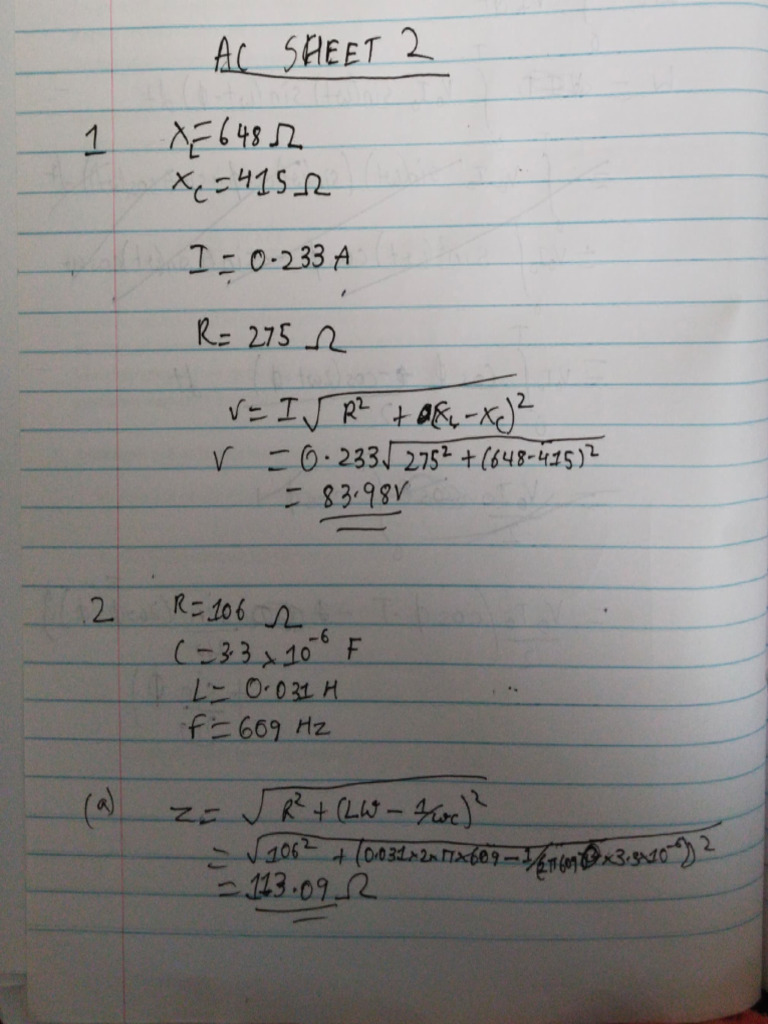 AC SHEET 2
1 X_L = 648 Ω
X_C = 415 Ω
I = 0.233 A
R = 275 Ω
V = I √(R² + (X_L - X_C)²)
V = 0.233 √(275² + (648-415)²)
= 83.98V
2 R = 106 Ω
C = 3.3 x 10⁻⁶ F
L = 0.031 H
f = 609 Hz
(a) Z = √(R² + (LW - 1/wc)²)
= √(106² + (0.031x2xπx609 - 1/(2π609x3.3x10⁻⁶))²)
= 113.09 Ω